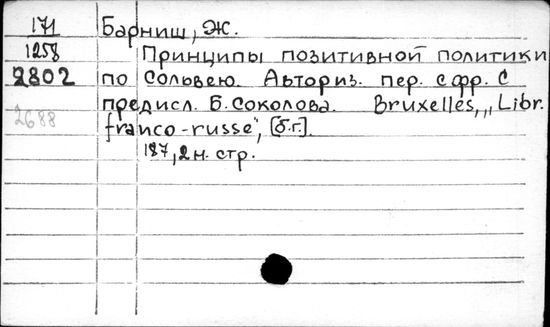 171 Барниш, Ж.
1258 Принципы позитивной политики
2802 по Сольвею. Авториз. пер. с фр. С
предисл. Б. Соколова. Bruxelles, „Libr.
2688 franco-russe“, [б.г.].
187, 2 н. стр.